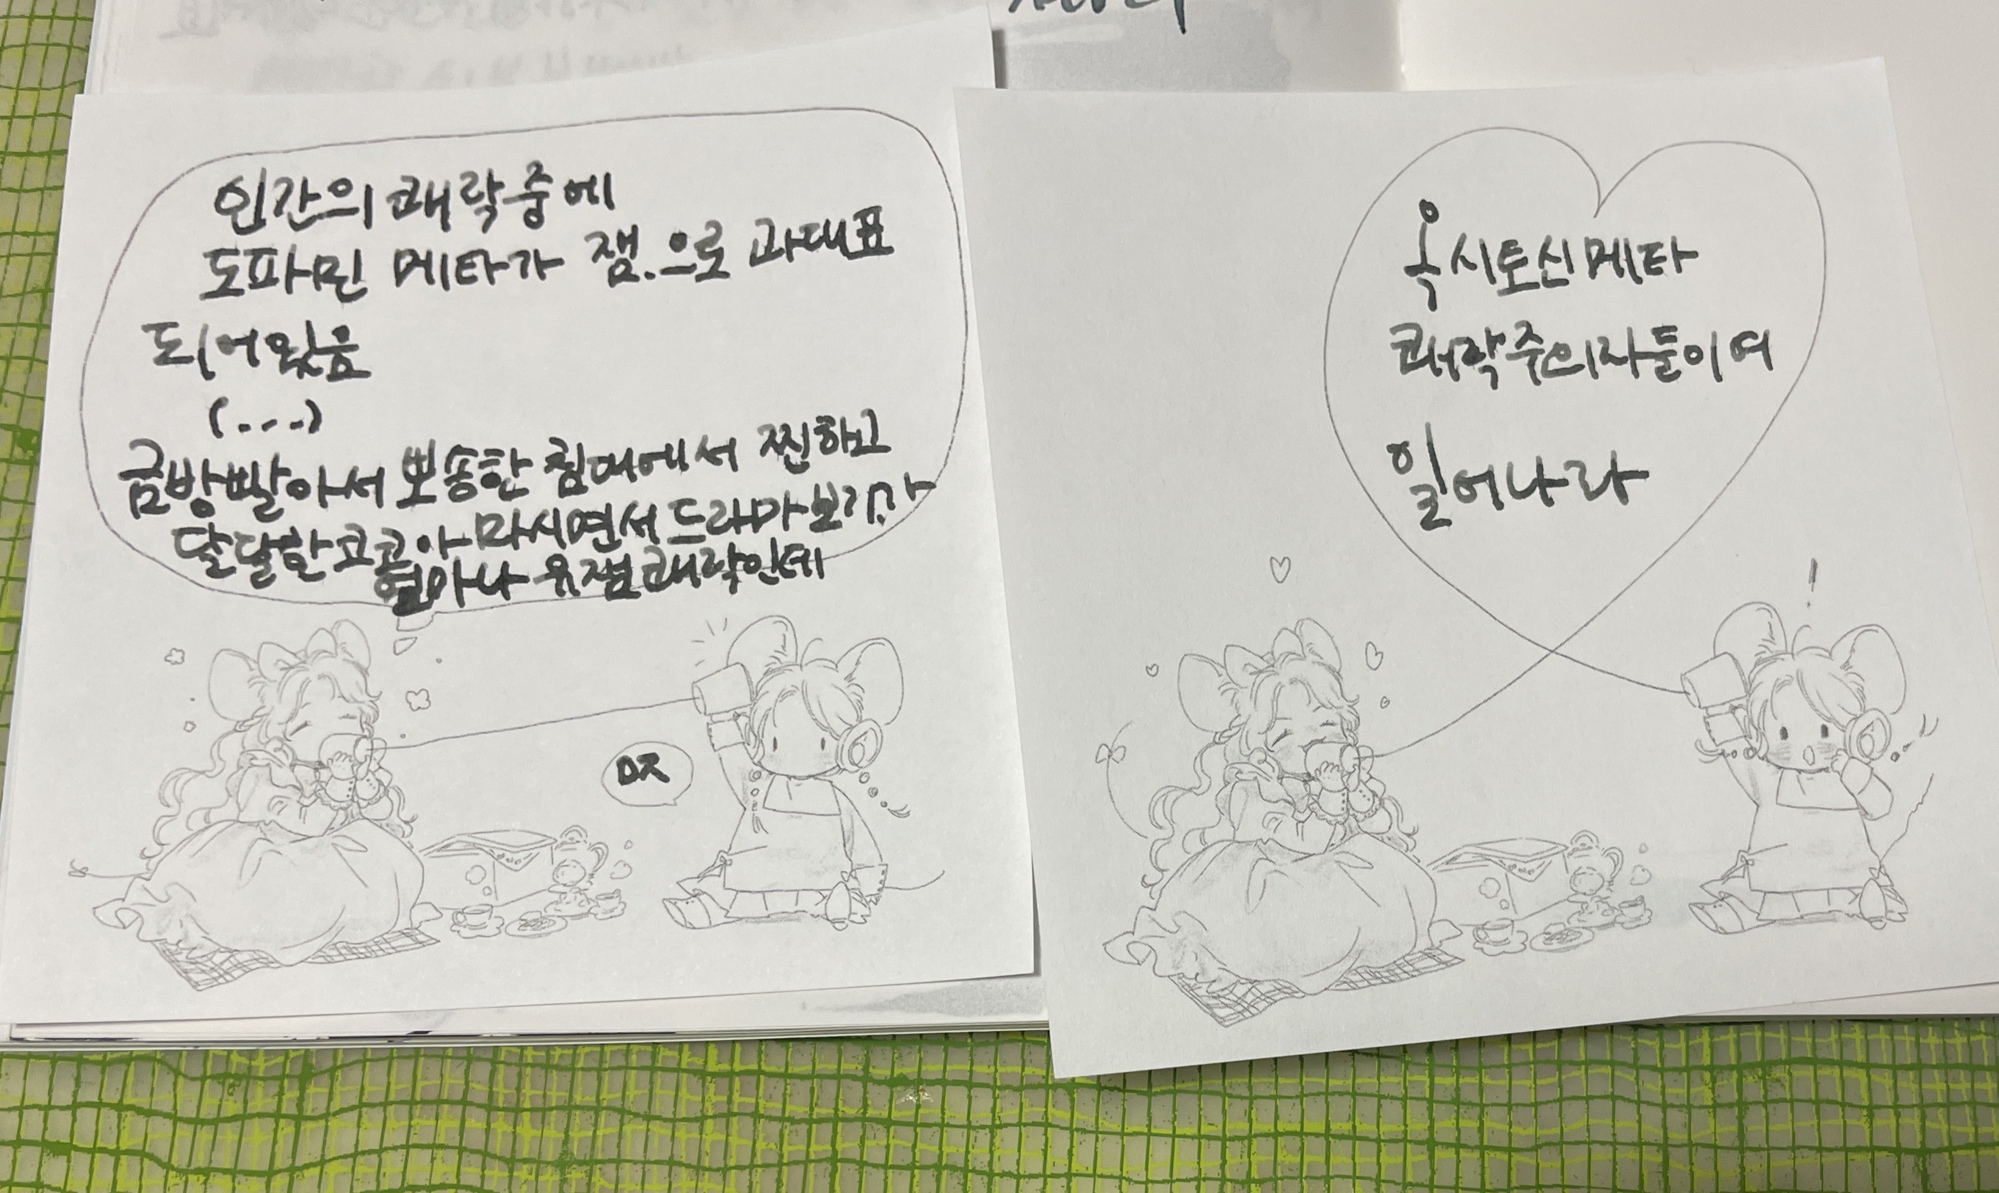 인간의 쾌락중에
도파민 메타가 잼.으로 과대표
되어있음
(...)
금방빨아서 뽀송한 침대에서 찐하고
달달한 코코아 마시면서 드라마보기가
얼마나 유잼쾌락인데
ㅁㅈ
옥시토신메타
쾌락주의자들이여
일어나라
!